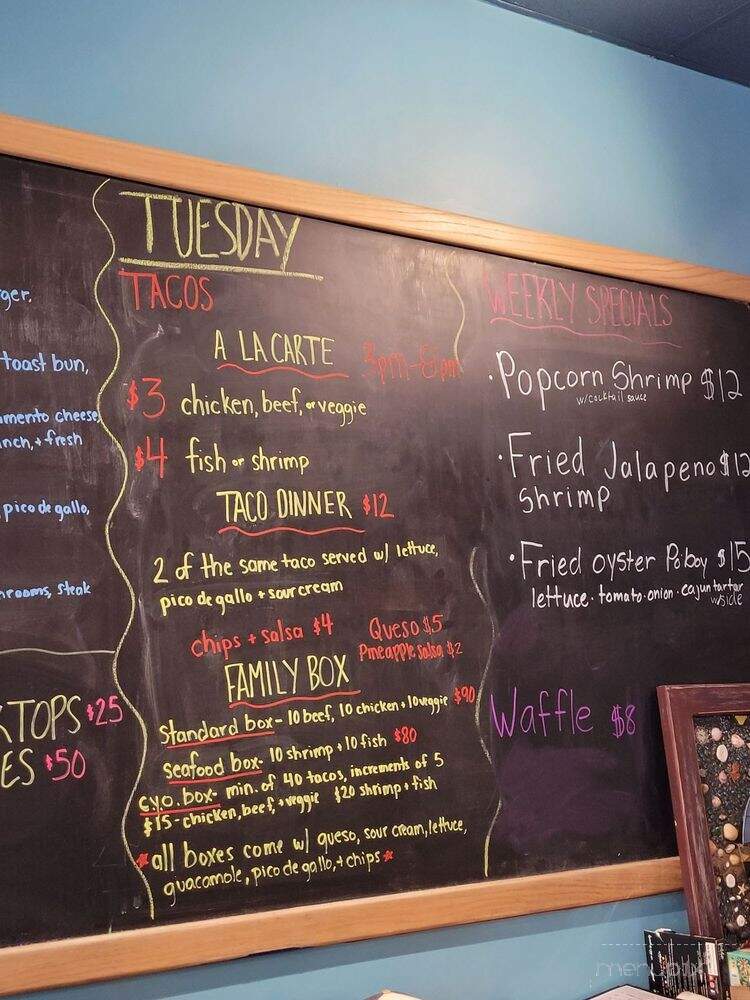 ger.
toast bun,
amento cheese,
nch, + fresh
pico de gallo,
hrooms, steak
KTOPS $25
ES $50
TUESDAY
TACOS
A LA CARTE 3pm-8pm
$3 chicken, beef, or veggie
$4 fish or shrimp
TACO DINNER $12
2 of the same taco served w/ lettuce,
pico de gallo + sour cream
chips + salsa $4
Queso $5
Pineapple salsa $2
FAMILY BOX
Standard box- 10 beef, 10 chicken + 10 veggie $90
Seafood box- 10 shrimp + 10 fish $80
C.Y.O. box- min. of 40 tacos, increments of 5
$15- chicken, beef, + veggie $20 shrimp + fish
*all boxes come w/ queso, sour cream, lettuce,
guacamole, pico de gallo, + chips*
WEEKLY SPECIALS
·Popcorn Shrimp $12
w/cocktail sauce
·Fried Jalapeno $12
shrimp
·Fried oyster Po-boy $15
lettuce · tomato · onion · cajun tartar
w/side
Waffle $8
menupix